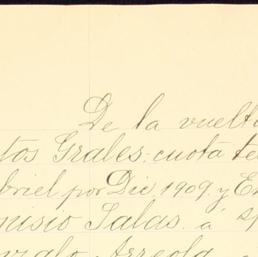 De la vuelta
tos Grales, cuota te
briel por Dic 1909, y En
nisio Salas, a
nzalo Arreola